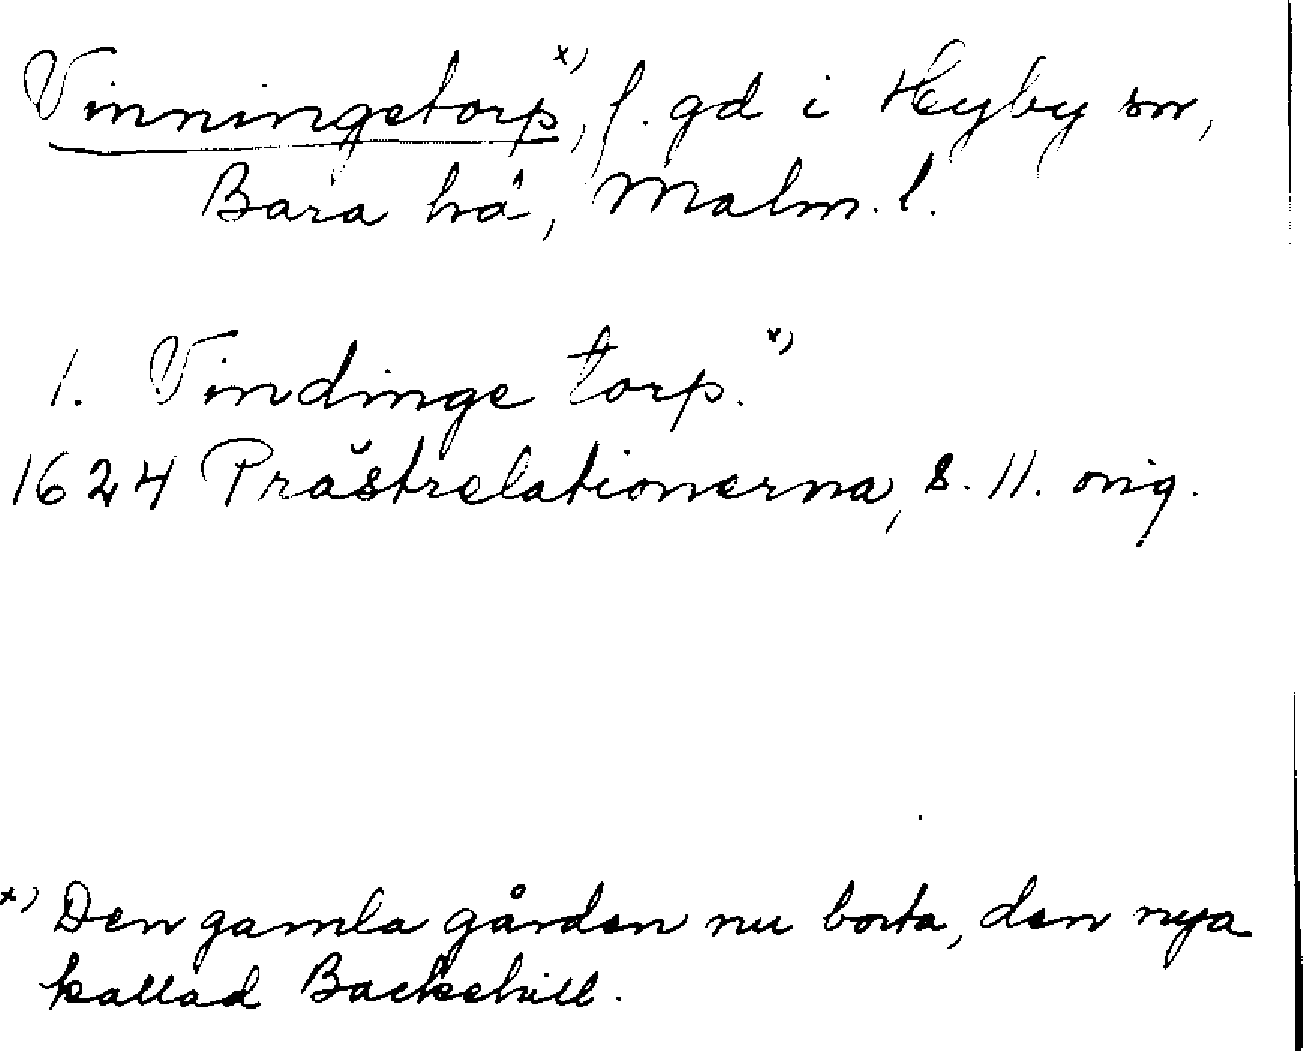 Vinningetorp x), f. gd i Hyby sn,
Bara hd, Malm. l.
1. Vindinge torp. x)
1624 Prästrelationerna, s. 11. orig.
x) Den gamla gården nu borta, den nya
kallad Backehill.